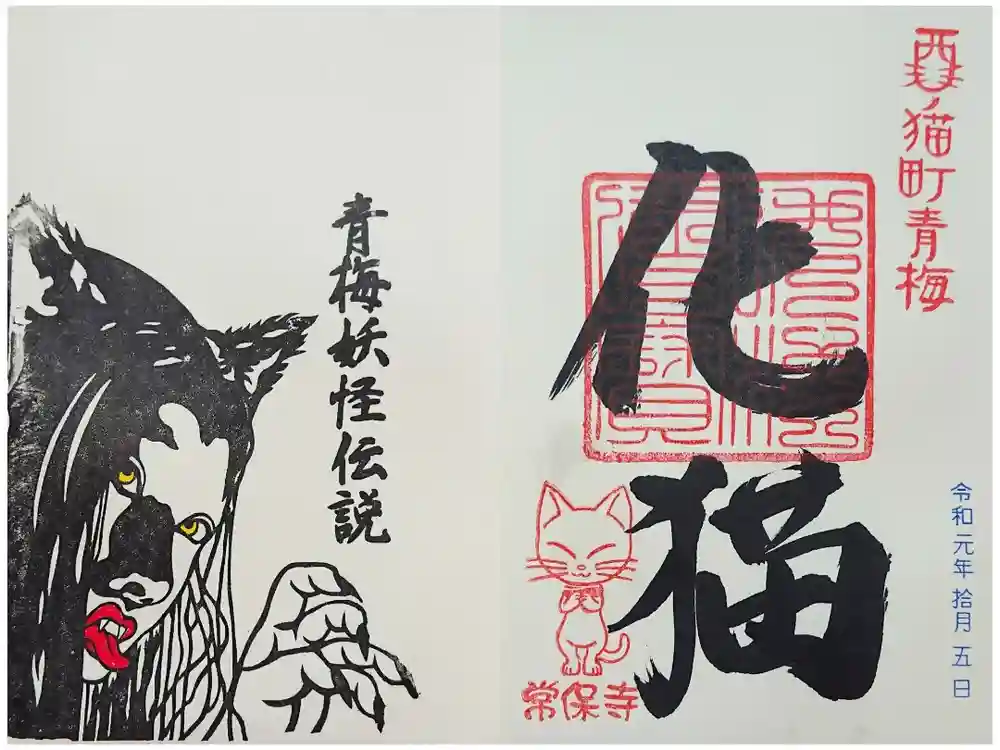 酉ノ猫町青梅
化猫
令和元年 拾月 五 日
常保寺
青梅妖怪伝説